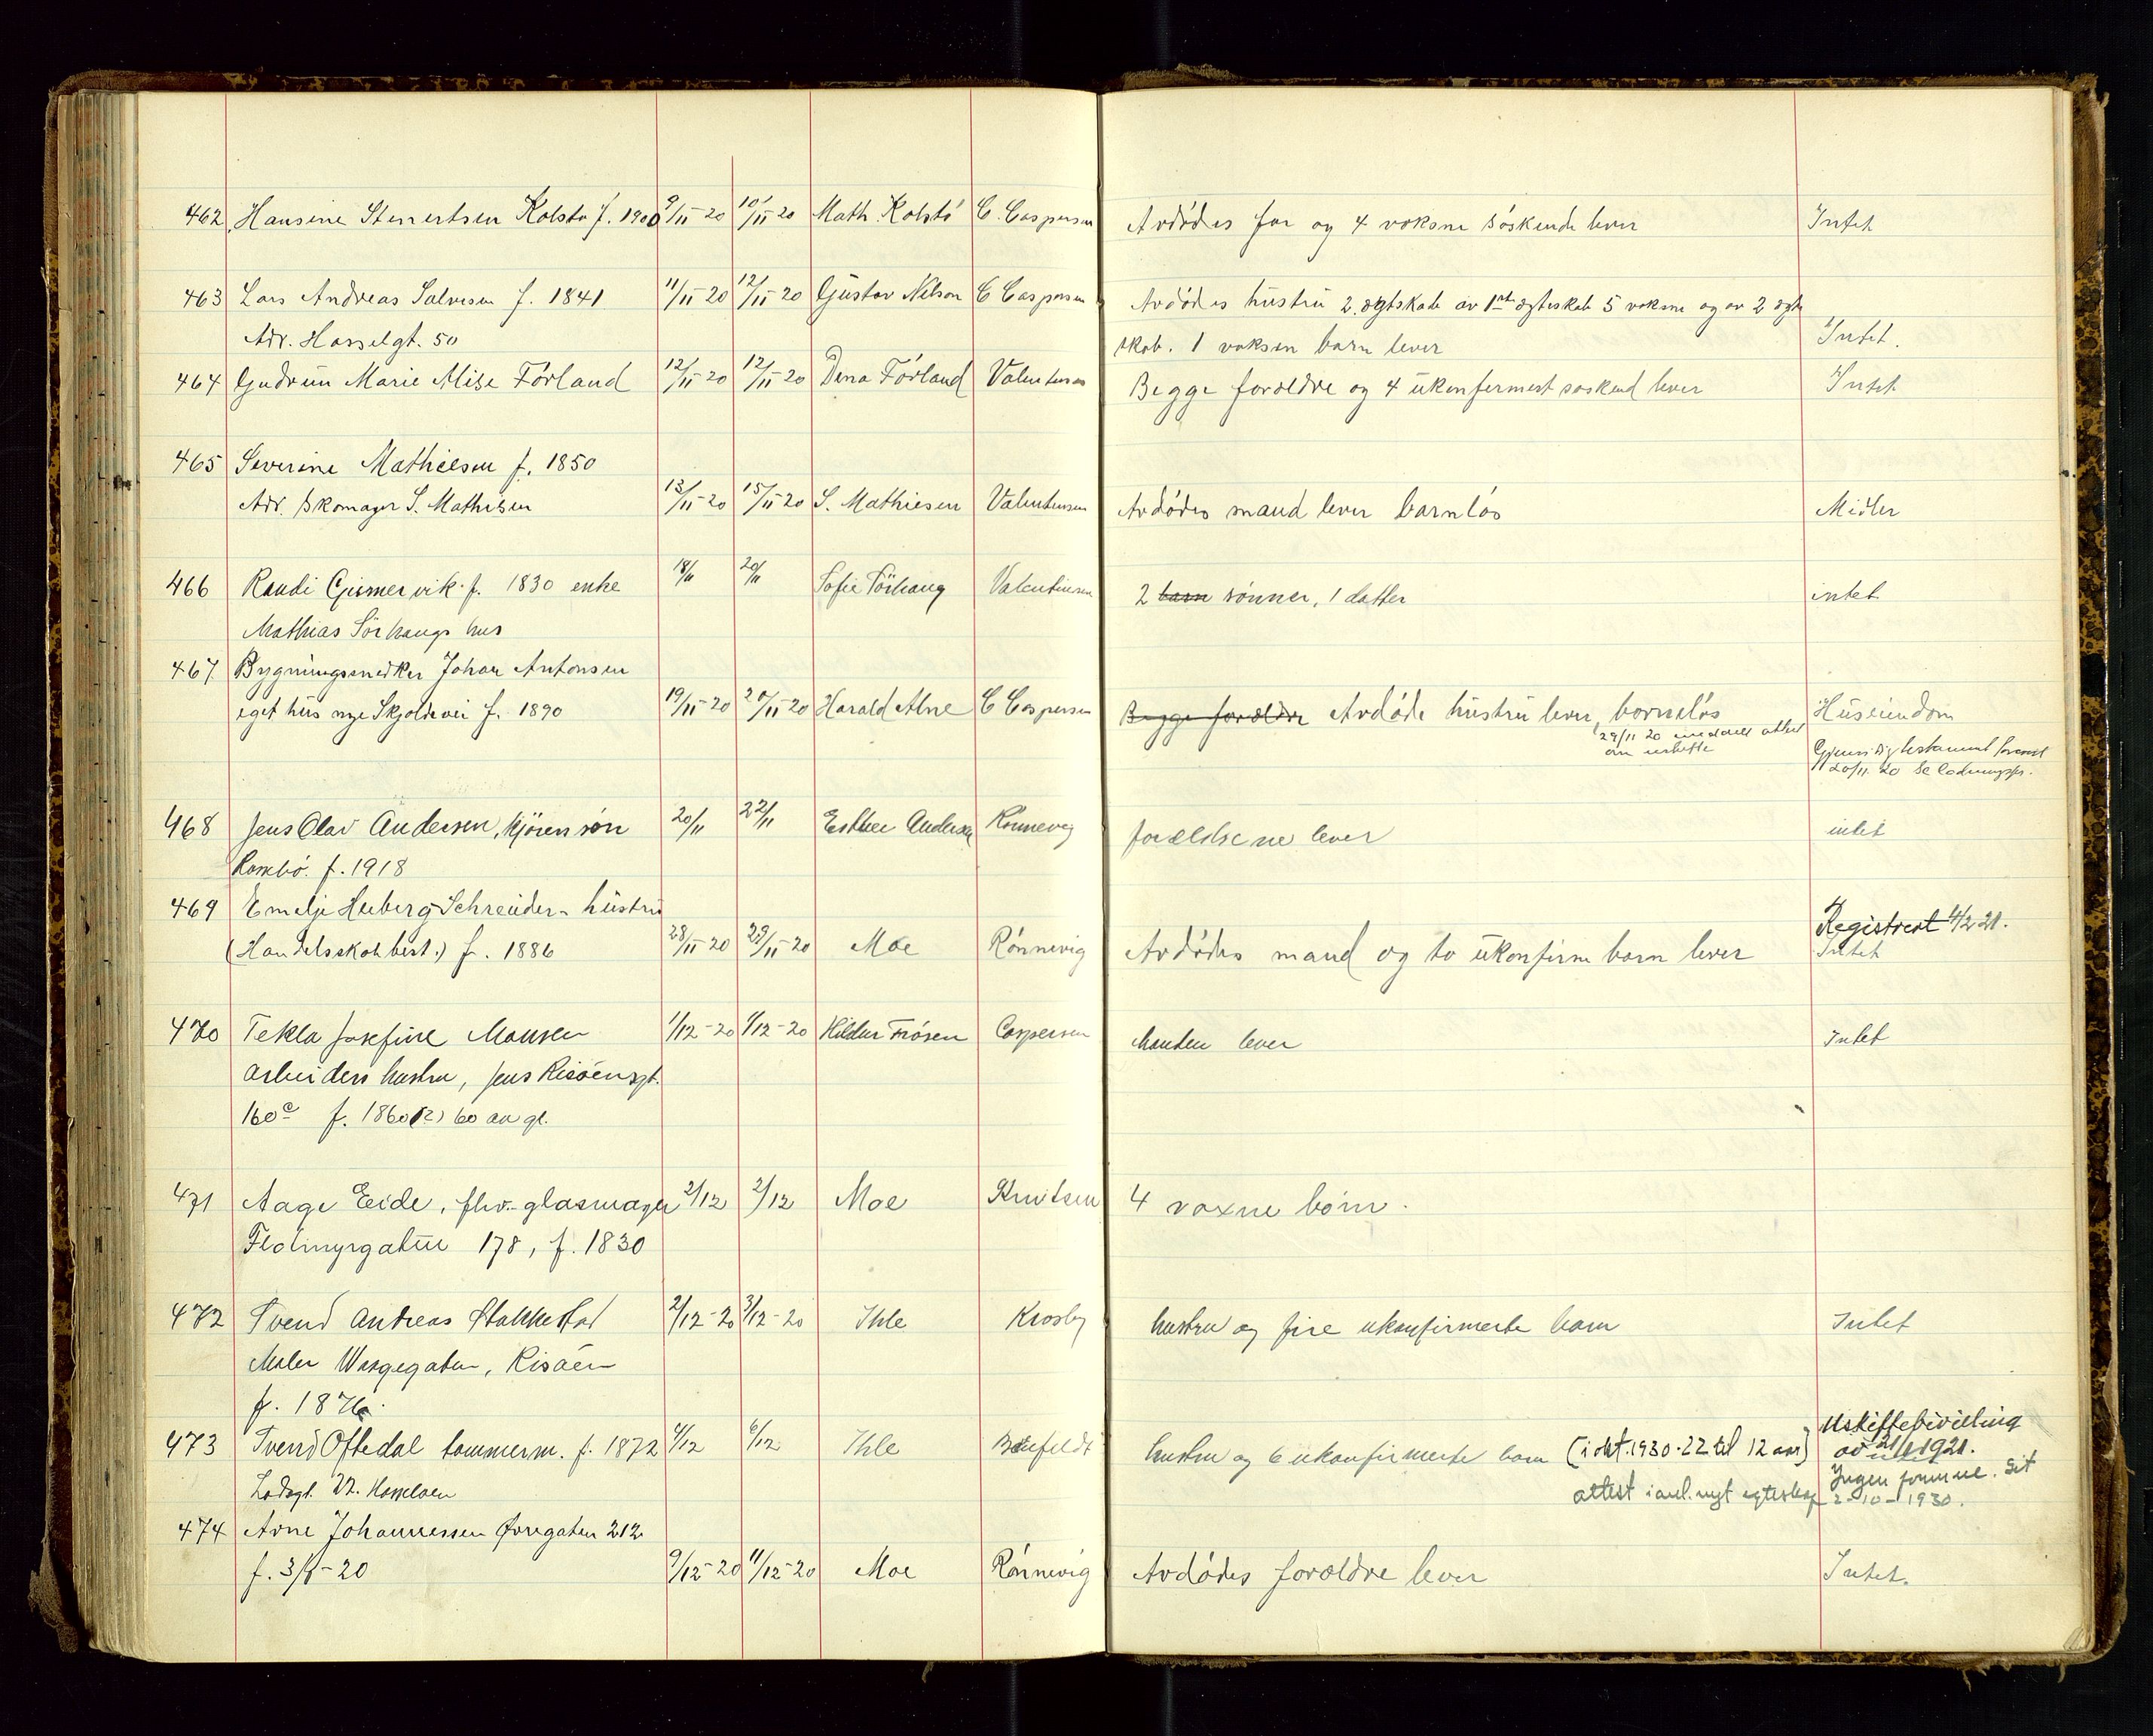 462 Hansine Stenertsen Kolstø f. 1900 9/11-20 10/11 20 Math. Kolstö C. Caspersen Avdödes far og 4 voksne söskende lever Intet
463 Lars Andreas Salvesen f. 1841 11/11 20 12/11 20 Gustav Nilson C Caspersen Avdödes hustru 2. ægtskab av 1ste ægteskab 5 voksne og av 2 ægte
Adr. Hasselgt. 50 skab. 1 voksen barn lever Intet.
464 Gudrun Marie Alise Förland 12/11-20 12/11-20 Dina Förland Valentinsen Begge foreldre og 4 ukonfermert söskend lever Intet
465 Severine Mathiesen f. 1850
Adr. Skomager S. Mathisen 13/11-20 15/11-20 S. Mathiesen Valentinsen Avdödes mand lever barnlös Midler
466 Randi Gismervik f. 1830 enke 18/11 20/11 Sofie Sörhaug Valentinsen 2 barn sönner, 1 datter intet
Mathias Sörhaugs hus
467 Bygningssnedker Johan Antonsen
eget hus nye Skjoldevei f. 1890 19/11-20 20/11-20 Harald Alne C Caspersen Begge foreldre Avdöde hustru lever, barnelös Huseiendom
29/11 20 meddelt attest
om uskifte Gjensidig testament
20/11 20 Se
468 Jens Olav Andersen, kjören sön 20/11 22/11 Esther Andersen Rönnevig forældrene lever intet
f. 1918
469 Emelje Heeberg Schreuder - hustru
(Handelsskolebest.) f. 1886 28/11-20 29/11-20 Moe Rönnevig Avdödes mand og to ukonfirm barn lever Registrert 4/2 21.
Intet
470 Tekla Josefine Monsen 1/12-20 1/12-20 Hildur Frösen Caspersen Manden lever Intet
arbeiders hustru, Jens Risöensgt.
160c f. 1860(?) 60 aar gl.
471 Aage Eide, fhv. glasmager 2/12 2/12 Moe Knutsen 4 voxne börn.
Flotmyrgaten 178, f. 1830
472 Svend Andreas Stakkestad 2/12-20 3/12-20 Ihle Krosby hustru og fire ukonfirmerte barn Intet
Maler, Risöen
f. 1876.
473 Svend Oftedal tömmerm. f. 1872 4/12 6/12 Ihle hustru og 6 ukonfirmerte barn (i okt. 1930 · 22 til 12 aar) Uskiftebevilling
av 21/1 1921.
Lodsgt. 22. Hasseløen attest i anl. nyt egteskap Ingen formue. Sit
2-10-1930.
474 Arne Johannessen Øvregaten 212
f. 3/8-20 9/12-20 11/12-20 Moe Rönnevig Avdödes foreldre lever Intet.